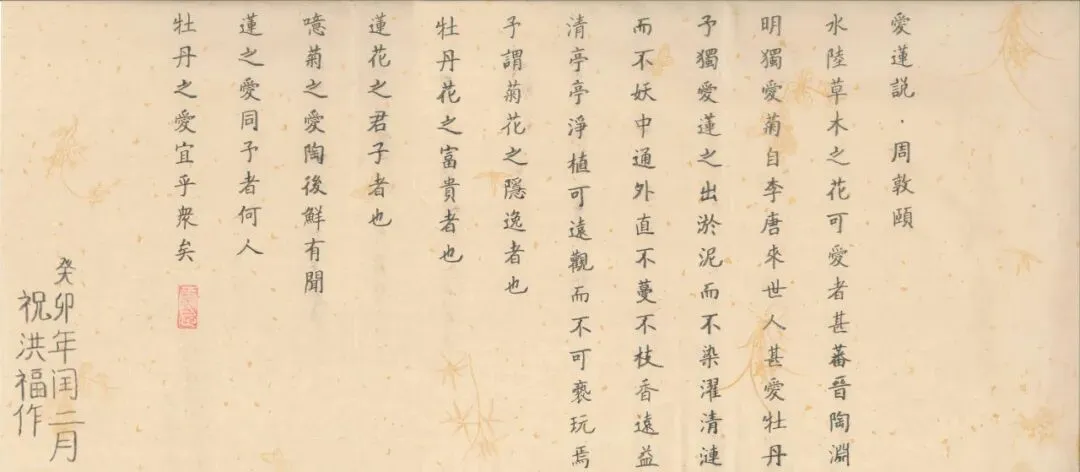 愛蓮説·周敦頤
水陸草木之花可愛者甚蕃晉陶淵
明獨愛菊自李唐來世人甚愛牡丹
予獨愛蓮之出淤泥而不染濯清漣
而不妖中通外直不蔓不枝香遠益
清亭亭淨植可遠觀而不可褻玩焉
予謂菊花之隱逸者也
牡丹花之富貴者也
蓮花之君子者也
噫菊之愛陶後鮮有聞
蓮之愛同予者何人
牡丹之愛宜乎衆矣
癸卯年闰二月
祝洪福作